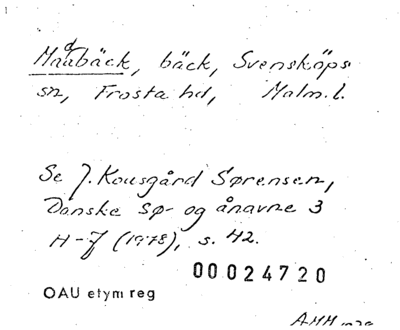 Maabäck, bäck, Svensköps
sn, Frosta hd, Malm. l.
Se J. Kousgård Sørensen,
Danske sø- og ånavne 3
H-J (1978), s. 42.
00024720
OAU etym reg